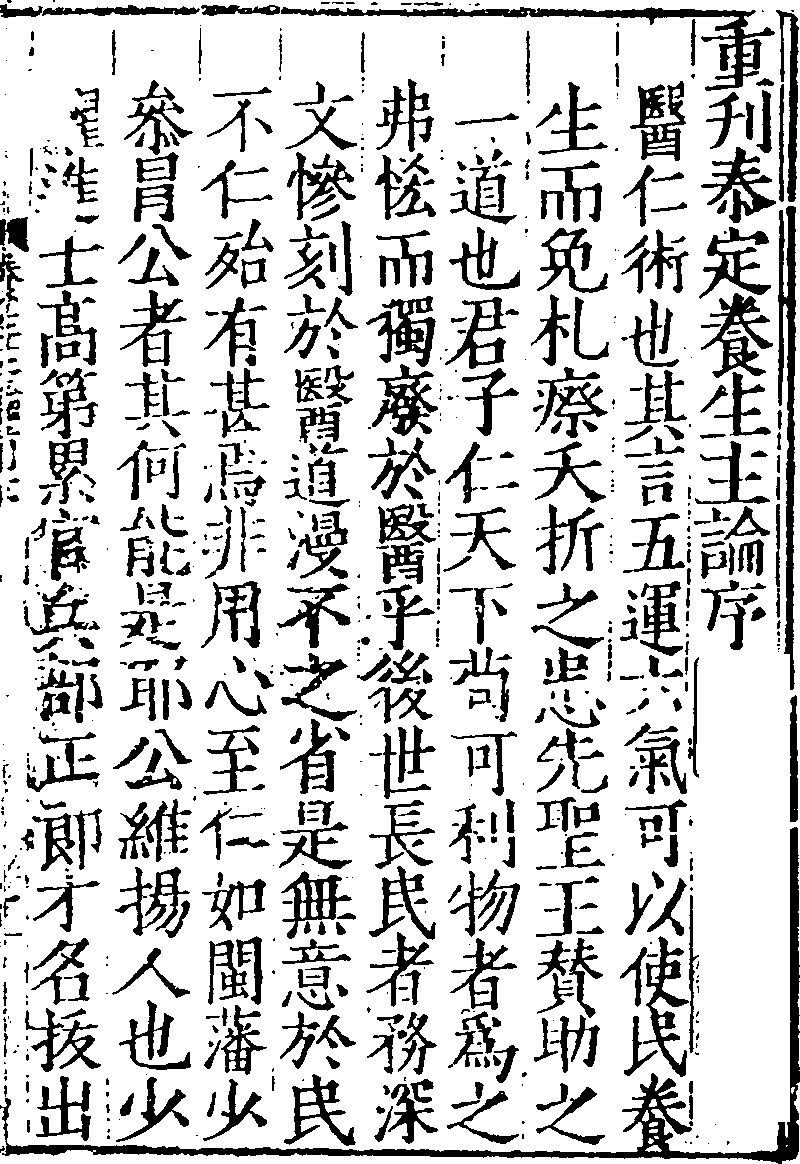 重刊泰定養生主論序
醫仁術也其言五運六氣可以使民養
生而免札瘵夭折之患先聖王贊助之
一道也君子仁天下苟可利物者爲之
弗恡而獨廢於醫乎後世長民者務深
文慘刻於醫道漫不之省是無意於民
不仁殆有甚焉非用心至仁如閩藩少
叅冒公者其何能是耶公維揚人也少
擢進士高第累官兵部正郎才名抜出